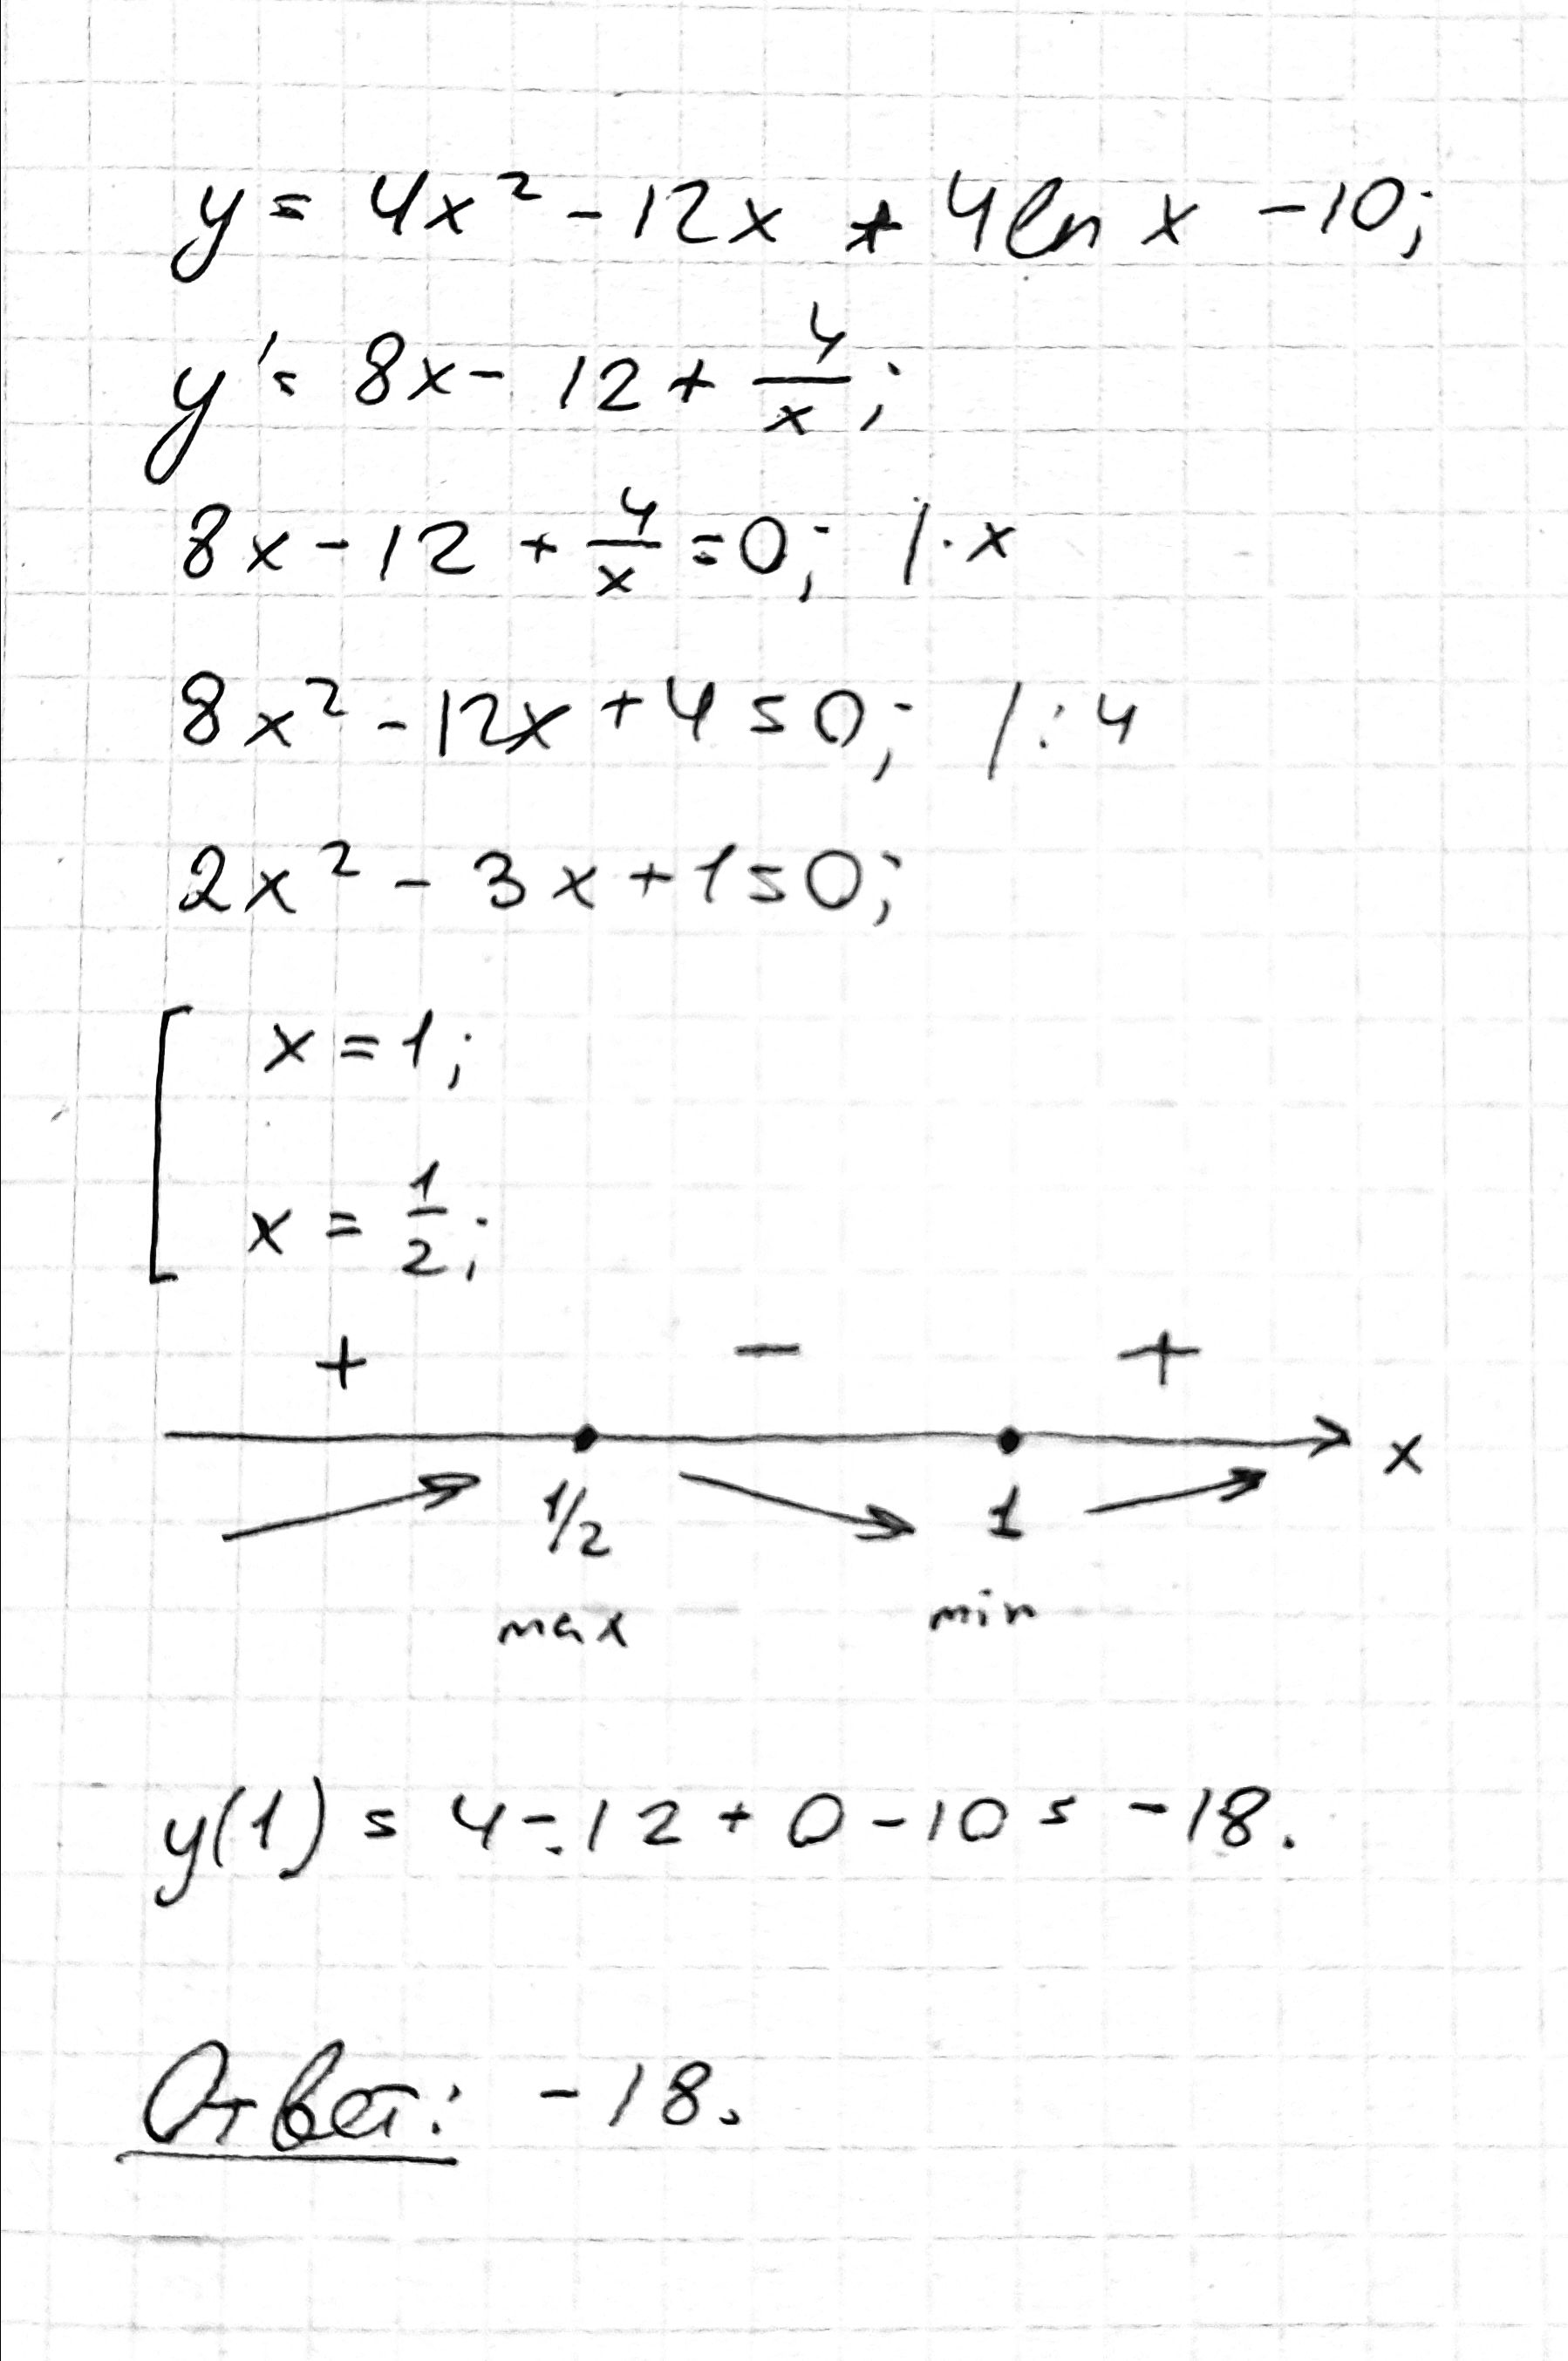 y = 4x² - 12x + 4 ln x - 10;
y' = 8x - 12 + 4/x;
8x - 12 + 4/x = 0; | · x
8x² - 12x + 4 = 0; | : 4
2x² - 3x + 1 = 0;
[ x = 1;
x = 1/2;
+ - +
x
1/2 1
max min
y(1) = 4 - 12 + 0 - 10 = -18.
Ответ: -18.